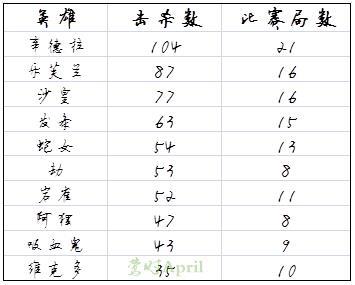 英雄 击杀数 比赛局数
辛德拉 104 21
乐芙兰 87 16
沙皇 77 16
发条 63 15
蛇女 54 13
劫 53 8
岩雀 52 11
阿狸 47 8
吸血鬼 43 9
维克多 35 10
April